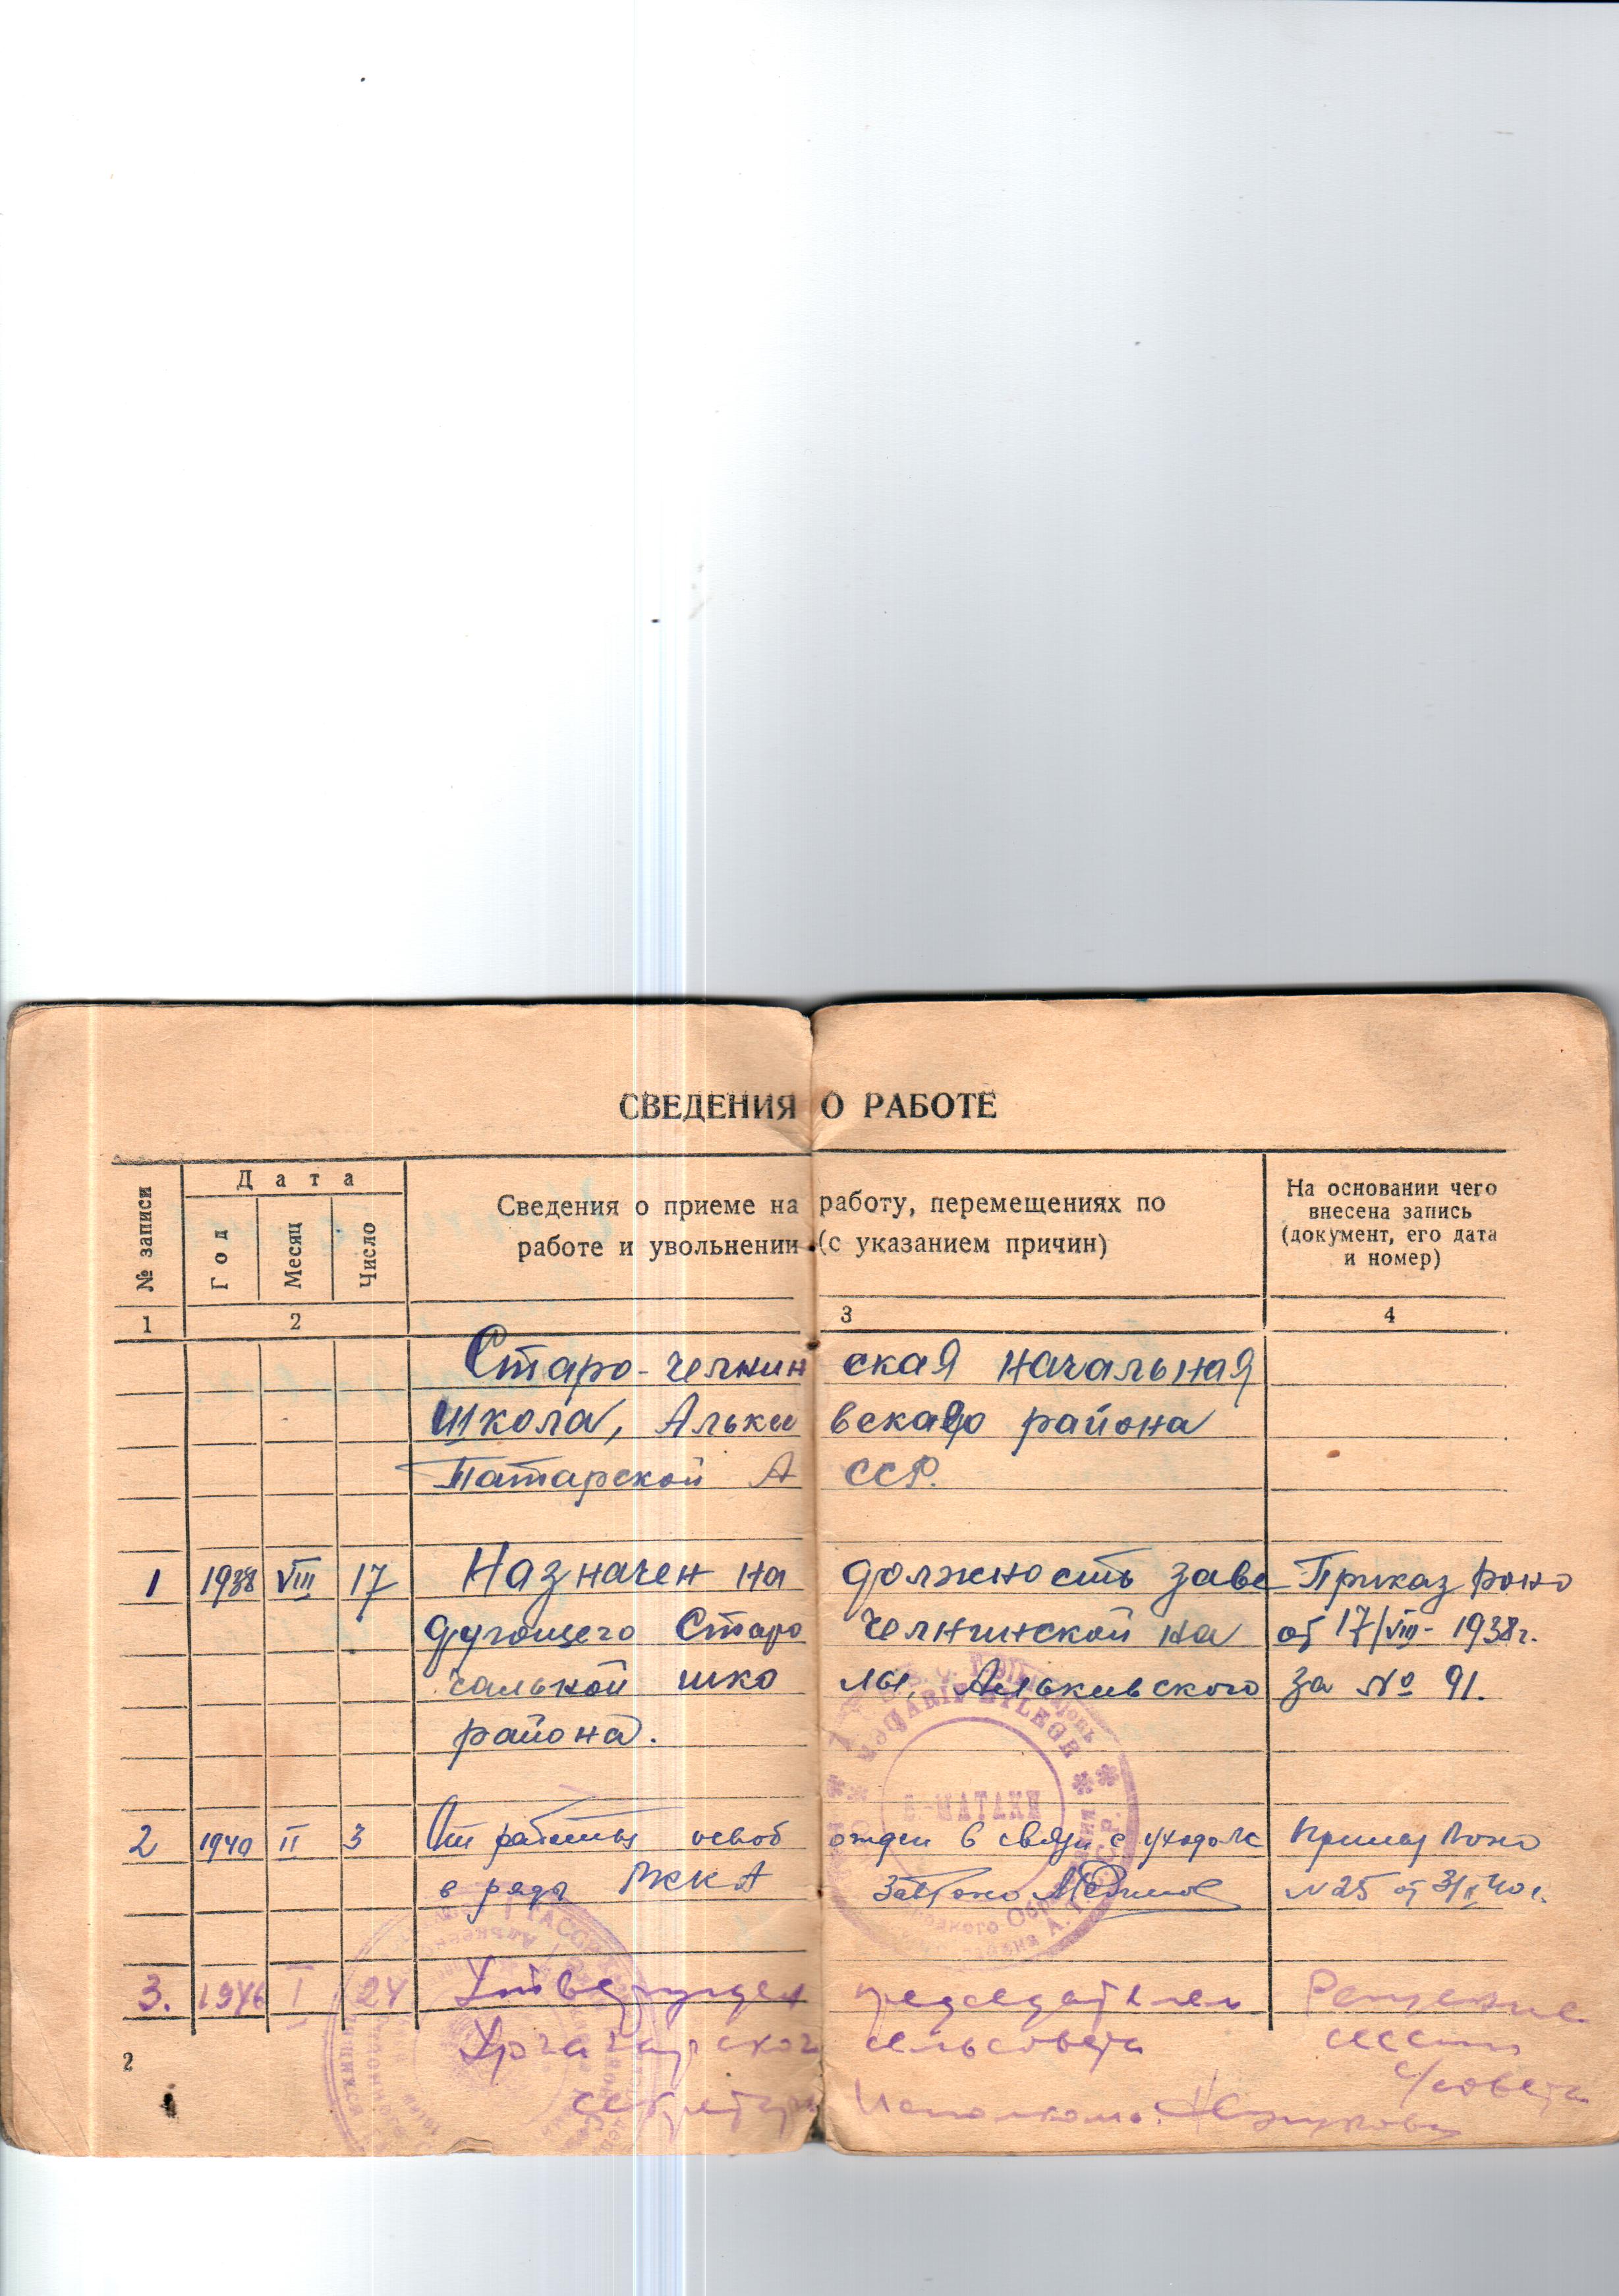 СВЕДЕНИЯ О РАБОТЕ
№ записи
Дата
Год
Месяц
Число
Сведения о приеме на работу, перемещениях по
работе и увольнении (с указанием причин)
На основании чего
внесена запись
(документ, его дата
и номер)
1 2 3 4
Старо-челнинская начальная
школа, Алькивского района
Татарской АССР.
1 1938 VIII 17 Назначен на должность заве Приказ роно
дующего Старо Челнинской на от 17/VIII-1938г.
чальной школы, Алькивского за № 91.
района.
2 1940 II 3 От работы освобожден в связи с уходом Приказ Роно
в ряды РККА Зав Роно N 25 от 3/II 40 г.
З-МАТАКИ
3. 1946 I 24 Утвержден председателем Решение
сельсовета сессии
с/совета
секретарь Исполкома:
2